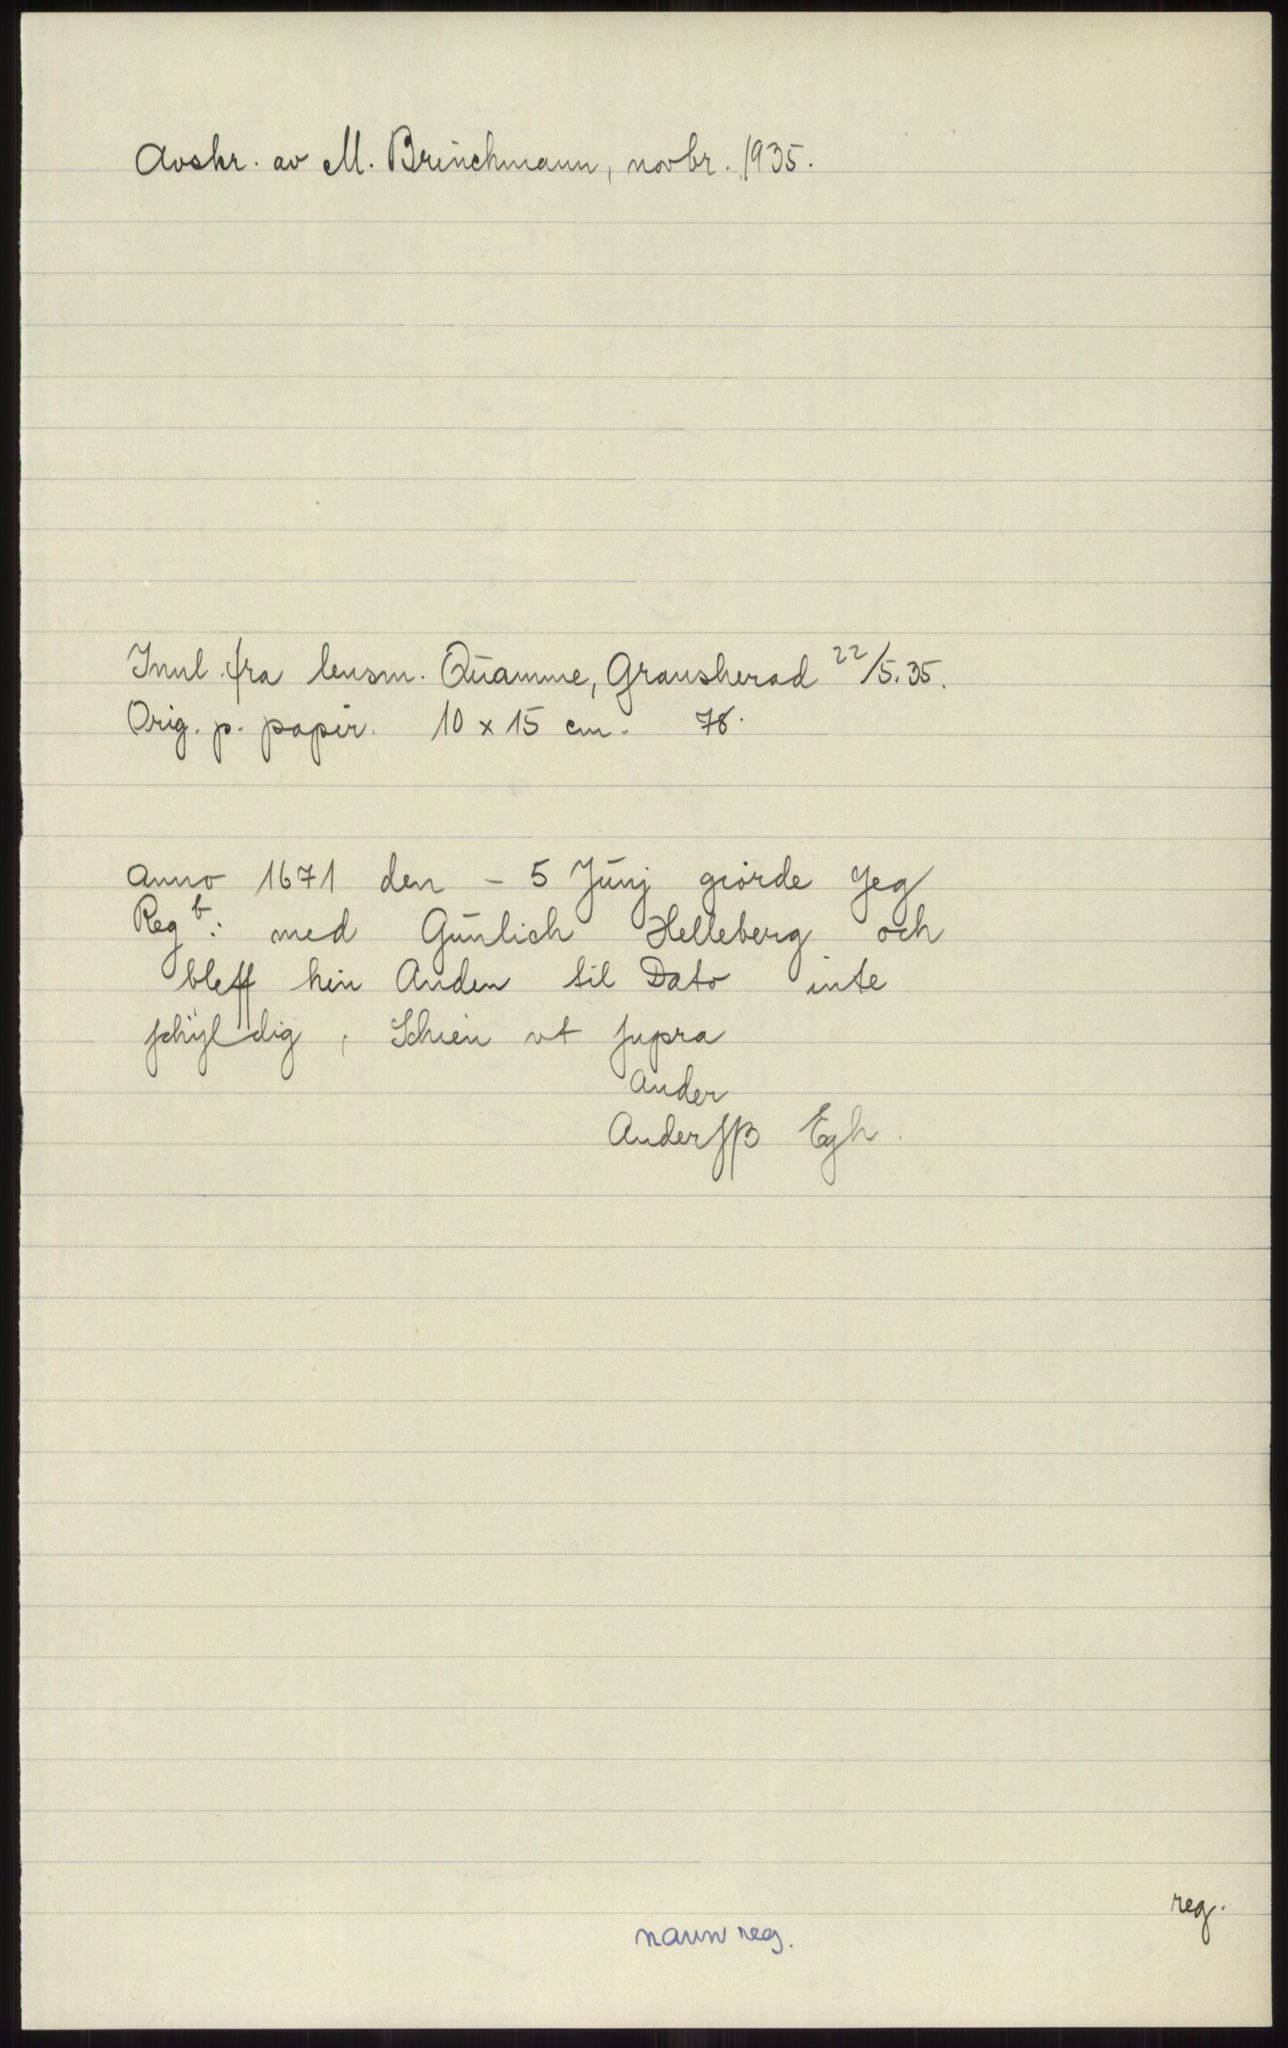 Avskr. av M. Brinchmann, novbr. 1935.
Innl. fra lensm. Quamme, Gransherad 22/5.35.
Orig. p. papir. 10 x 15 cm. 78.
Anno 1671 den - 5 Junj giorde Jeg
Reg b: med Gunlich Helleberg och
bleff hin Anden til Dato inte
schÿldig, Schien vt supra
Ander
Anderssß Egh.
reg.
navnreg.